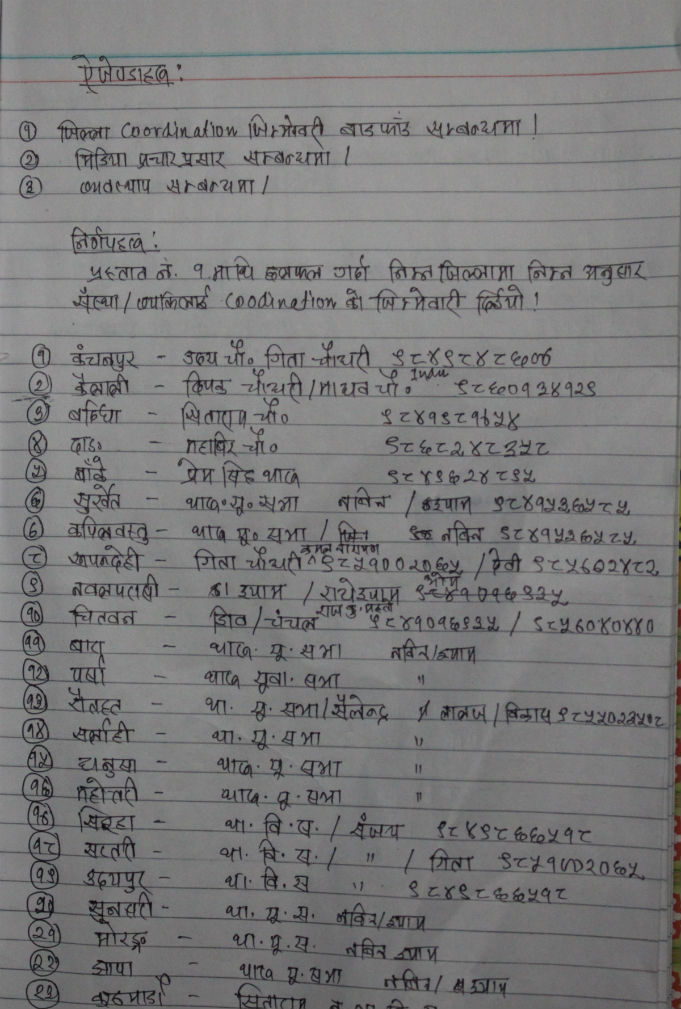 ऐजेण्डाहरु :
① जिल्ला Coordination जिम्मेवारी बाडफाँड सम्बन्धमा !
② मिडिया प्रचार प्रसार सम्बन्धमा ।
③ व्यवस्थाप सम्बन्धमा ।
निर्णयहरु :
प्रस्ताव नं. १ माथि छलफल गर्दा निम्न जिल्लामा निम्न अनुसार
संस्था / व्यक्तिलाई Coodination को जिम्मेवारी दिईयो !
① कंचनपुर - उदय चौ० गिता चौधरी ९८४९८४८६००६
② कैलाली - दिपक चौधरी / माधव चौ० Indu ९८६००१२४१२९
③ बर्दिया - सिताराम चौ० ९८४१९८१७५४
④ दाङ - महाबिर चौ० ९८६८२४८३५८
⑤ बाँके - प्रेम सिंह थारु ९८४९६२४८९५
⑥ सुर्खेत - थारु० यू० सभा नविन / उपाम ९८४१५३६५८५
⑥ कपिलवस्तु - थारु यू० सभा / नविन ९८४१५२६५८५
⑧ रुपन्देही - गिता चौधरी ९८५१००२०६५ / ९८५६०२४८२
⑨ नवलपरासी - / ९८४१०१६९३५
⑩ चितवन - शिव / चंचल ९८४१०१६९३५ / ९८५६०४०४४०
⑪ बारा - थारु. यू. सभा नविन / उपाम
⑫ पर्सा - थारु युवा. सभा "
⑬ रौतहट - था. यू. सभा / सैलेन्द्र / विकास ९८५५०२३५१८
⑭ सर्लाही - था. यू. सभा "
⑮ धनुसा - थारु. यू. सभा "
⑯ महोत्तरी - थारु. यू. सभा "
⑰ सिरहा - था. वि. स. / संजय ९८४९८६६५१८
⑱ सप्तरी - था. वि. स. / " / गिता ९८५१००२०६५
⑲ उदयपुर - था. वि. स " ९८४९८६६५१८
⑳ सुनसरी - था. यू. स. नविन / उपाम
㉑ मोरङ्ग - था. यू. स. नविन उपाम
㉒ झापा - थारु यू. सभा नविन / उपाम
㉓ काठमाडौ - सिताराम